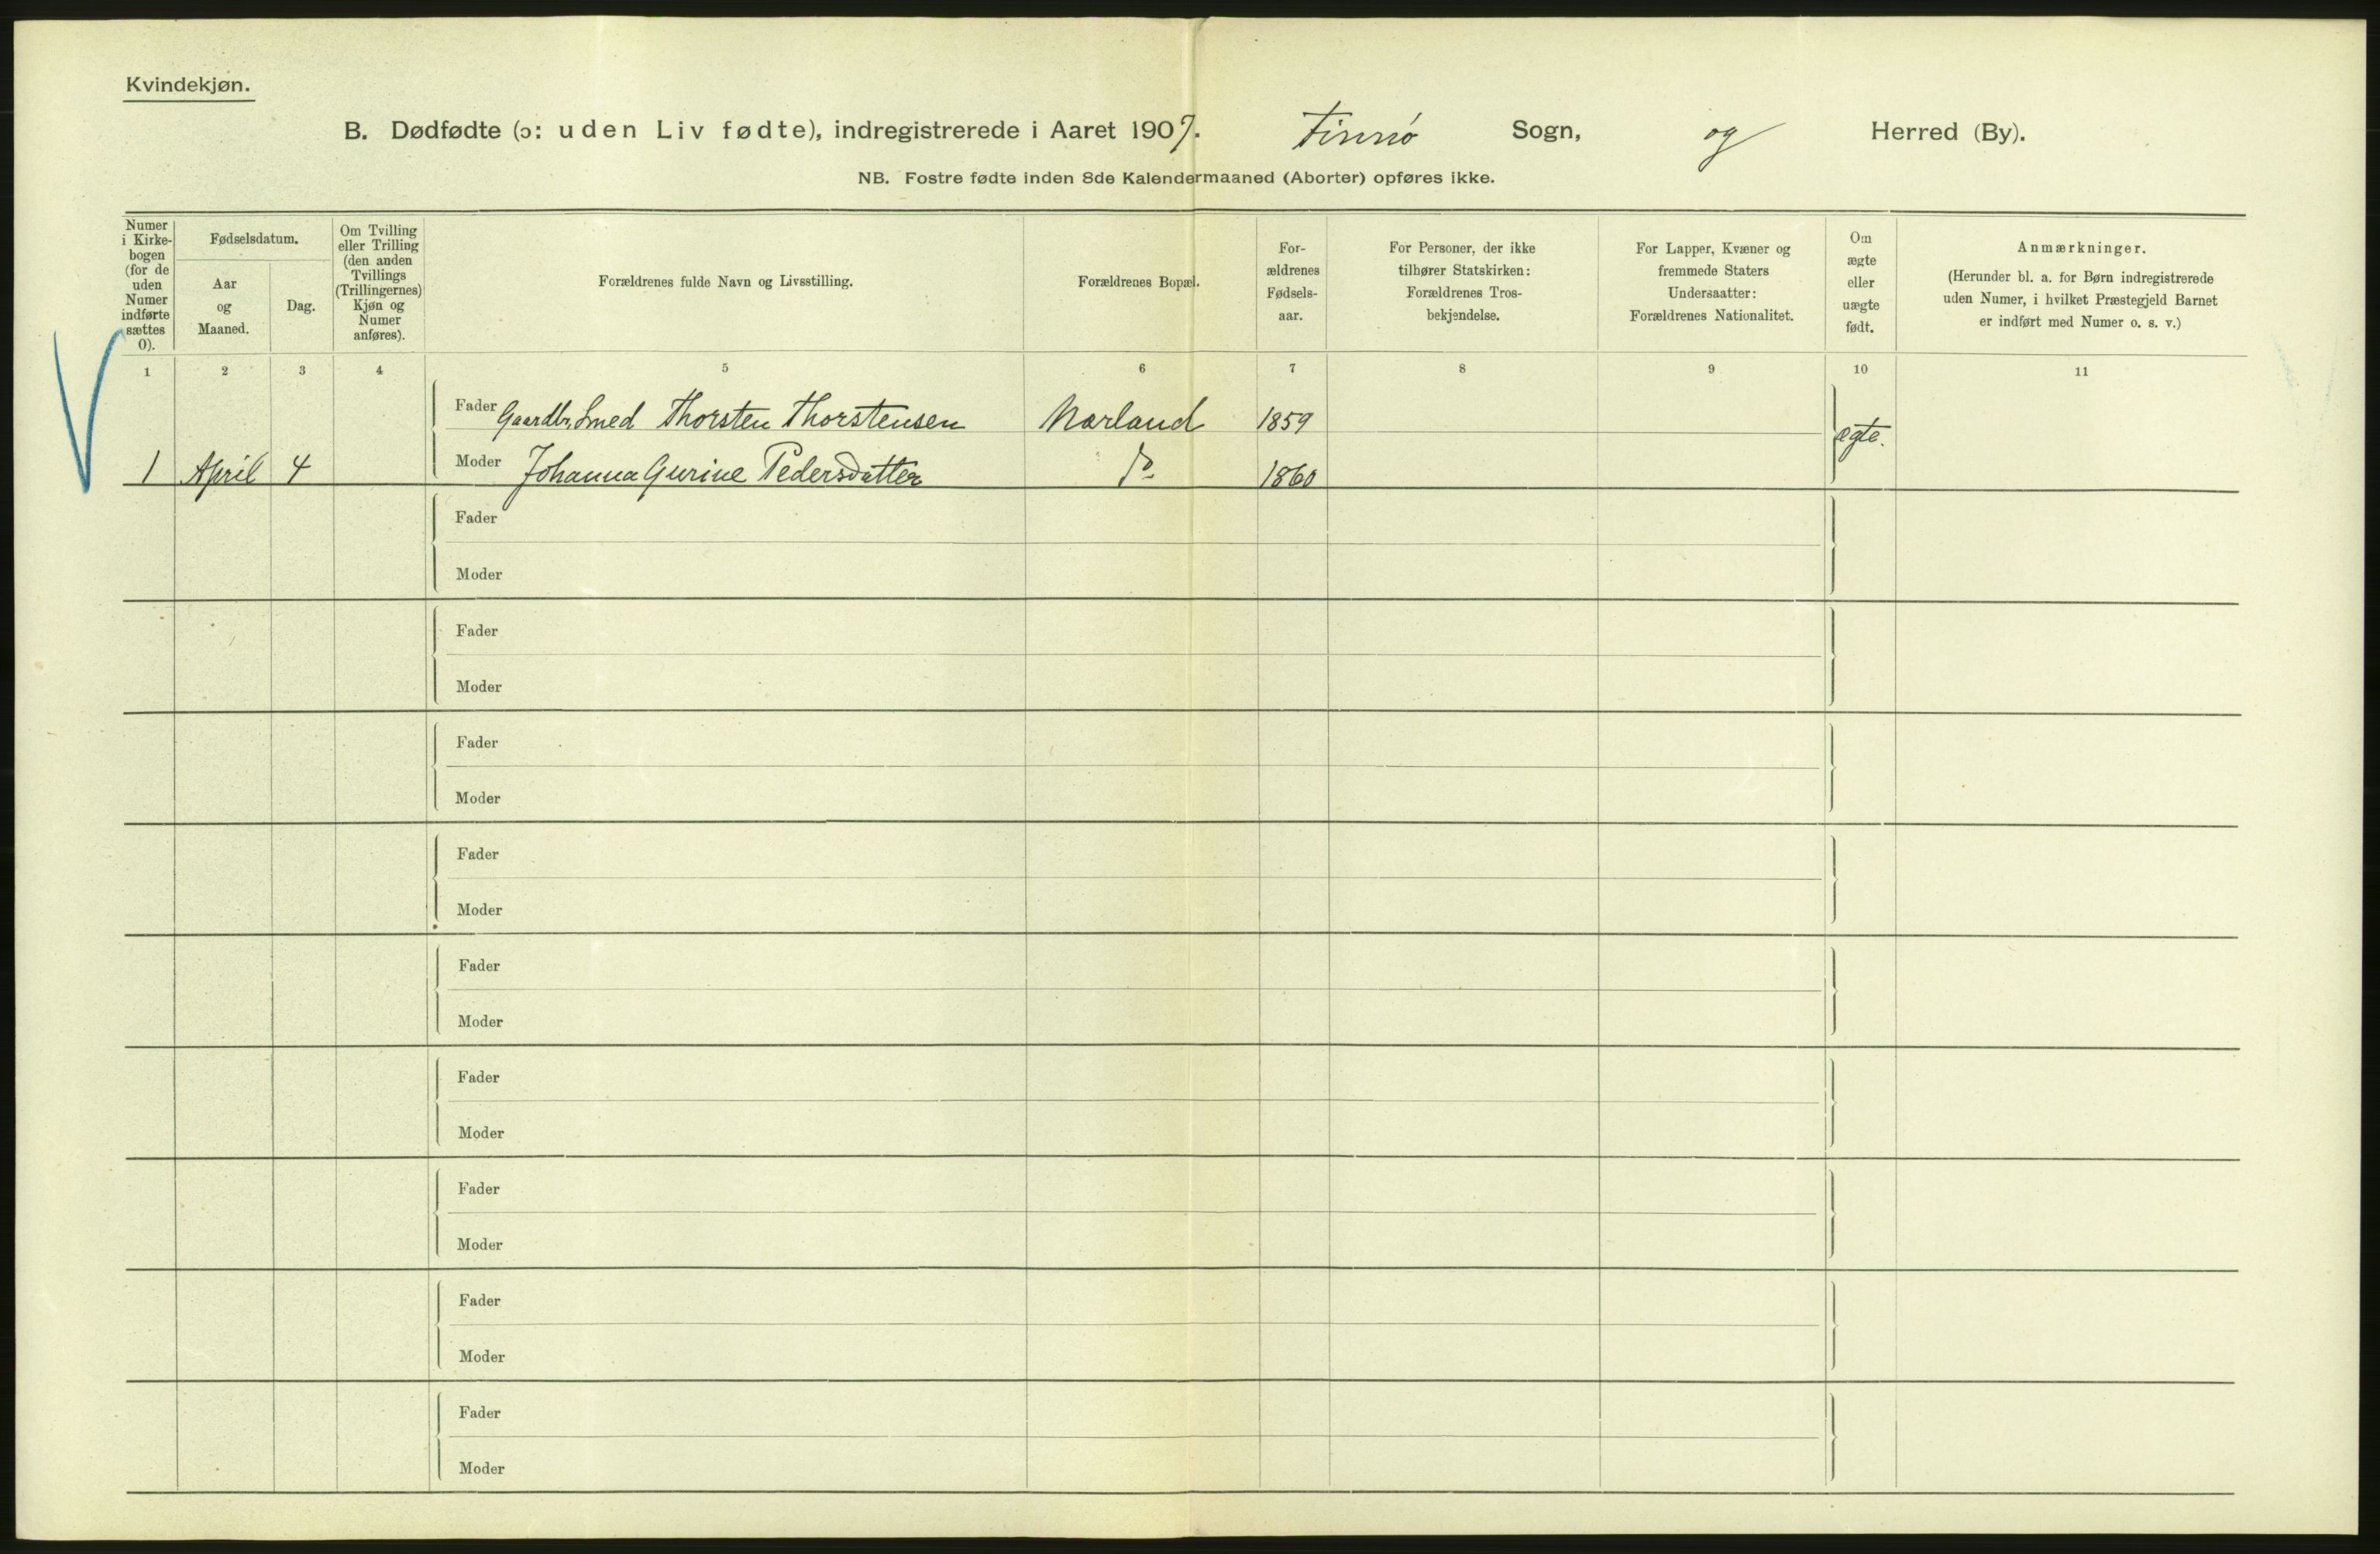 Kvindekjøn.
B. Dødfødte (ɔ: uden Liv fødte), indregistrerede i Aaret 1907. Finnö Sogn, og Herred (By).
NB. Fostre fødte inden 8de Kalendermaaned (Aborter) opføres ikke.
Numer
i Kirke-
bogen
(for de
uden
Numer
indførte
sættes
0).
Fødselsdatum.
Aar
og
Maaned.
Dag.
Om Tvilling
eller Trilling
(den anden
Tvillings
(Trillingernes)
Kjøn og
Numer
anføres).
Forældrenes fulde Navn og Livsstilling.
Forældrenes Bopæl.
For-
ældrenes
Fødsels-
aar.
For Personer, der ikke
tilhører Statskirken:
Forældrenes Tros-
bekjendelse.
For Lapper, Kvæner og
fremmede Staters
Undersaatter:
Forældrenes Nationalitet.
Om
ægte
eller
uægte
født.
Anmærkninger.
(Herunder bl. a. for Børn indregistrerede
uden Numer, i hvilket Præstegjeld Barnet
er indført med Numer o. s. v.)
1 2 3 4 5 6 7 8 9 10 11
Fader Gaardbr, Smed Thorsten Thorstensen Nørland 1859 ægte.
1 April 4 Moder Johanna Gurine Pedersdatter Do 1860
Fader
Moder
Fader
Moder
Fader
Moder
Fader
Moder
Fader
Moder
Fader
Moder
Fader
Moder
Fader
Moder
Fader
Moder